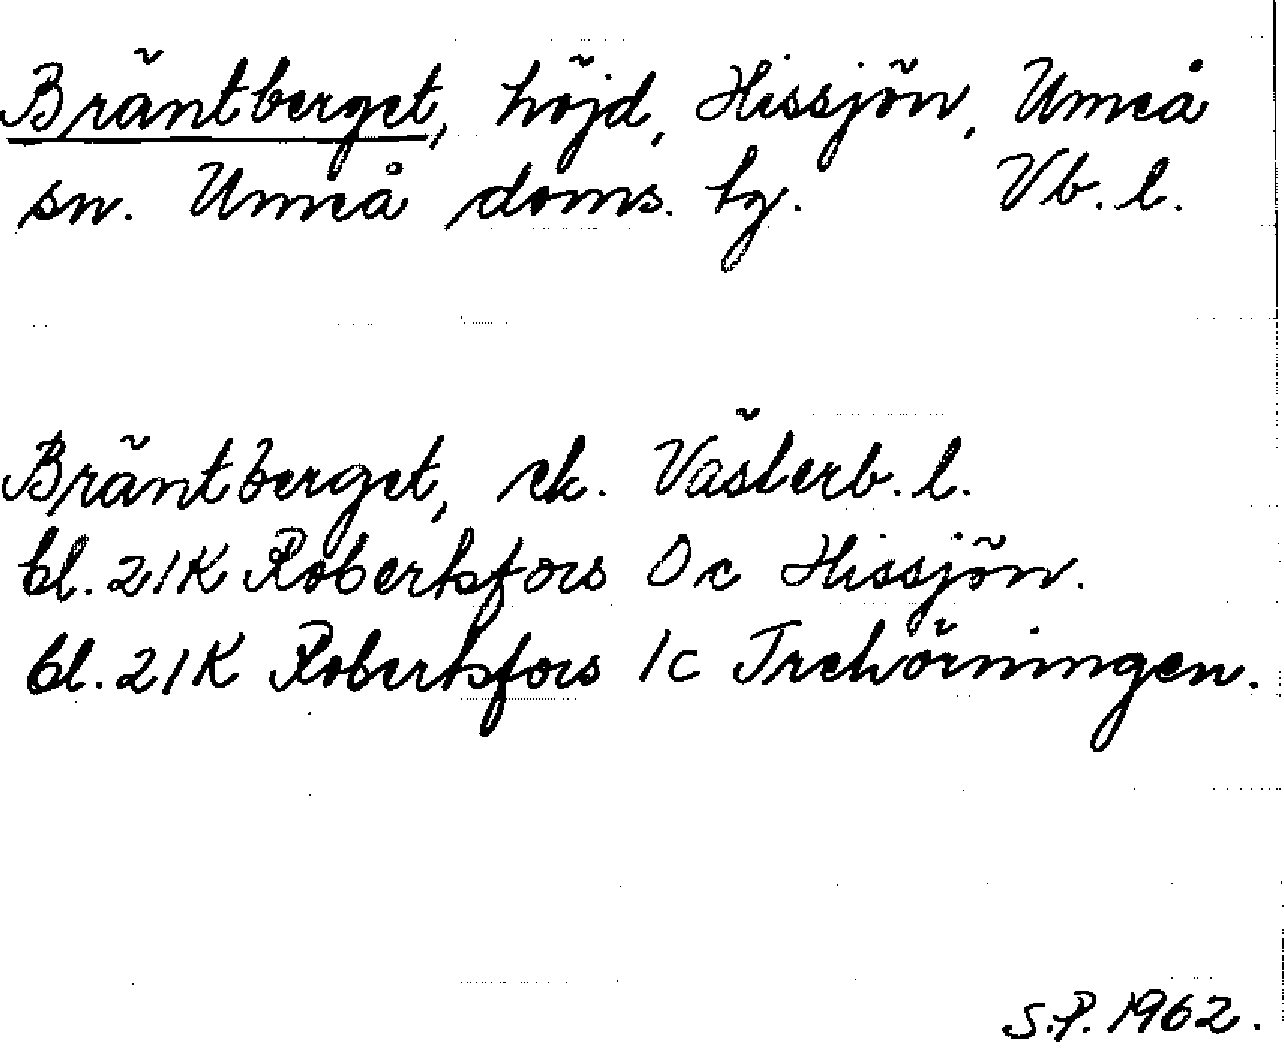 Bräntberget, höjd, Hissjön, Umeå
sn. Umeå doms. tg. Vb. l.
Bräntberget, ek. Västerb. l.
bl. 21K Robertsfors 0c Hissjön.
bl. 21K Robertsfors 1c Trehörningen.
S.P. 1962.